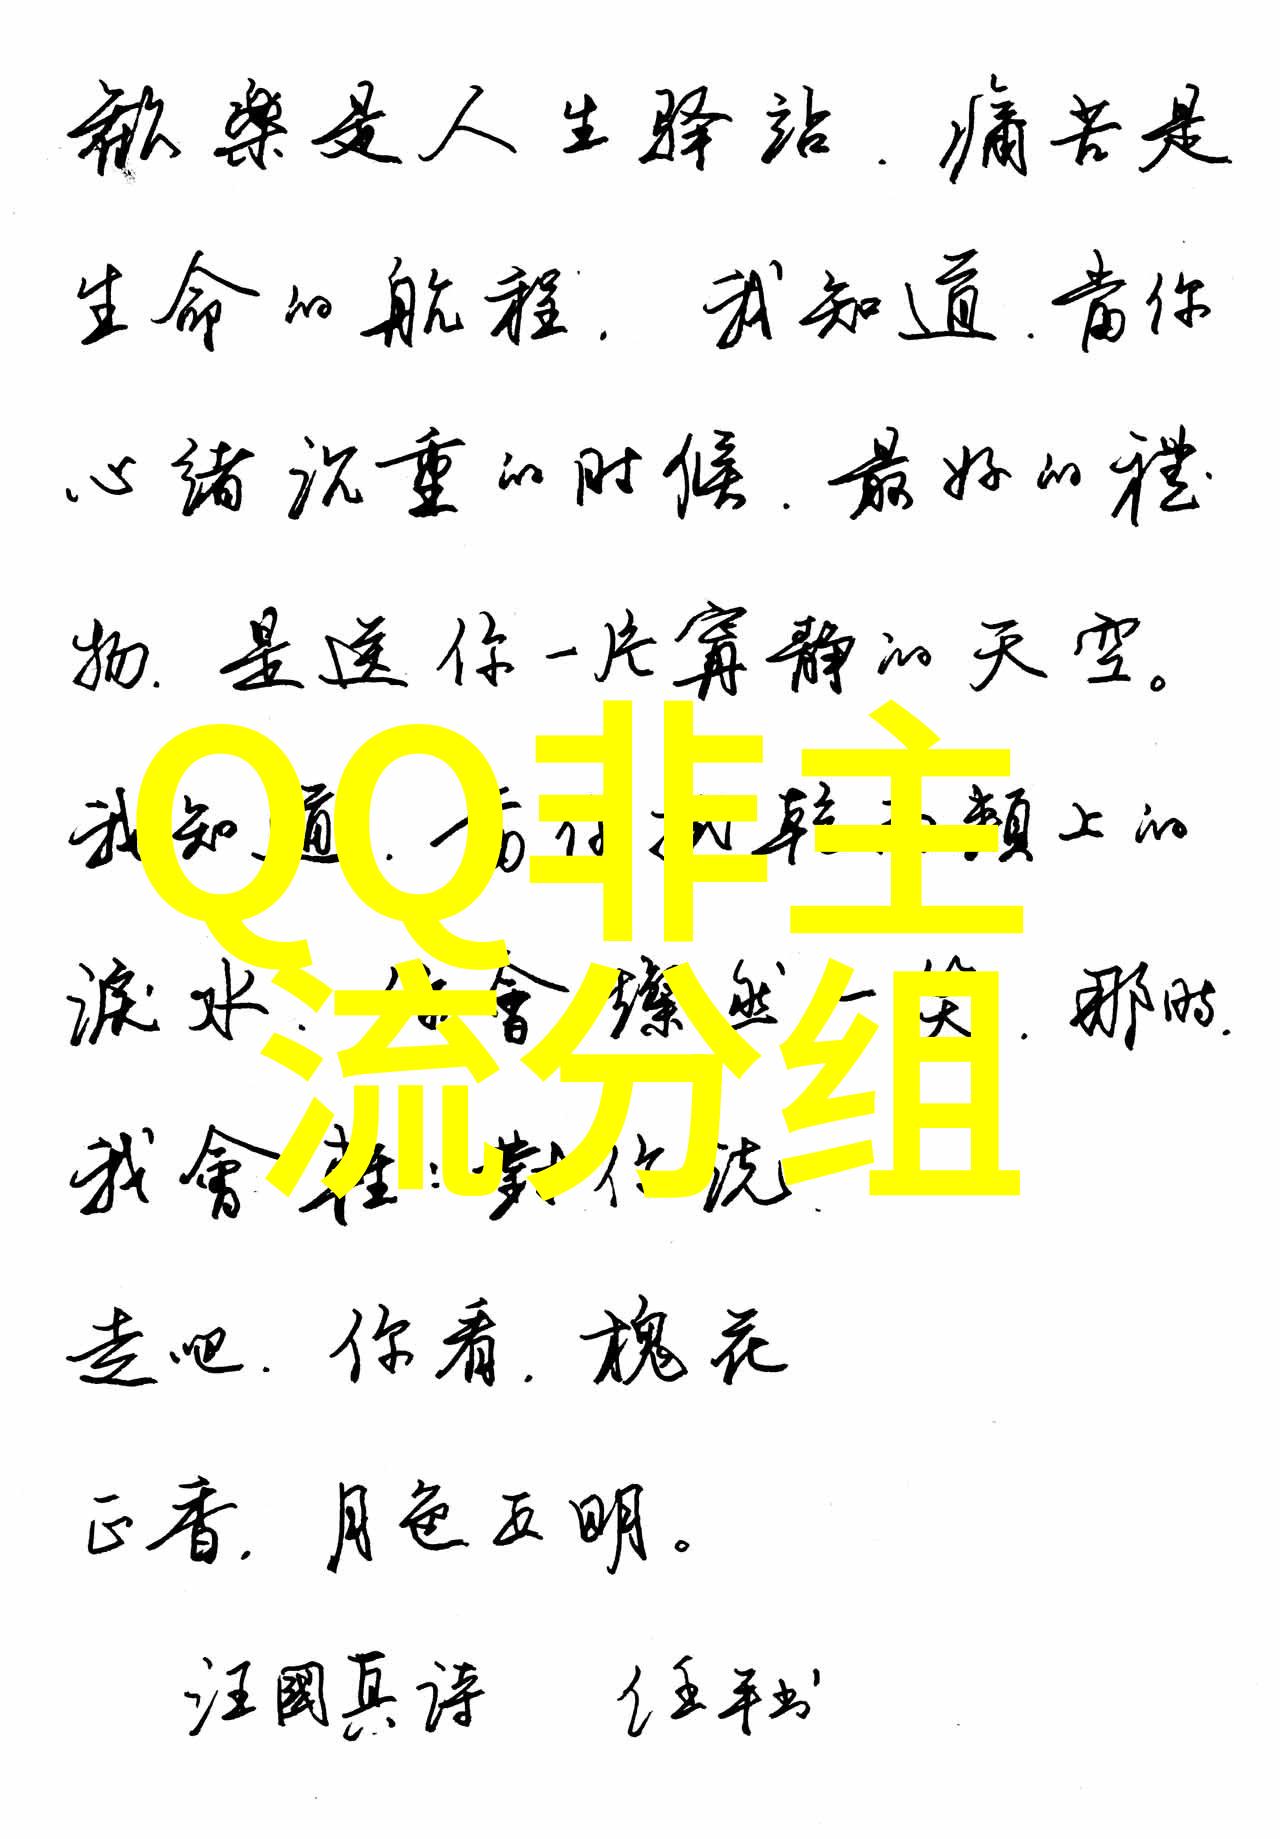 歡樂是人生驿站．痛苦是
生命的航程．我知道．當你
心緒沉重的时候．最好的禮
物．是送你一片寧靜的天空。
QQ非主
我知道．當你 乾 頰上的
淚水． 會燦然一笑．那時．
流分组
我會輕輕對你説
走吧．你看．槐花
正香．月色正明。
汪國真詩 任平书